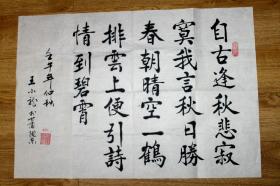 自古逢秋悲寂
寞我言秋日勝
春朝晴空一鶴
排雲上便引詩
情到碧霄
壬午年仲秋
王小